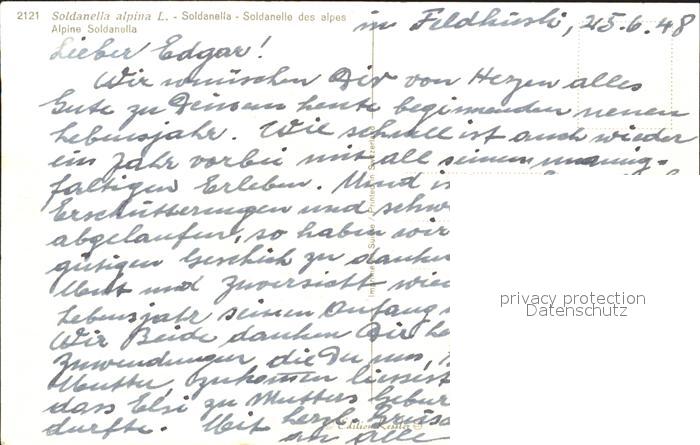 2121 Soldanella alpina L. - Soldanella - Soldanelle des alpes
Alpine Soldanella
in Feldhüsli, 25.6.48
Lieber Edgar!
Wir wünschen Dir von Herzen alles
Gute zu Deinem heute beginnenden neuen
Lebensjahr. Wie schnell ist auch wieder
ein Jahr vorbei mit all seinem mannig-
faltigen Erleben. Und
Erschütterungen und
abgelaufen, so haben wir
gütigen Geschick zu danken
Mut und Zuversicht
Lebensjahr seinen Anfang
Wir Beide danken Dir
Zuwendungen, die Du uns,
Mutter, zukommen liessest
dass Elsi zu Mutters
durfte. Mit herzl.
an alle
Imprimé en Suisse / Printed in Switzerland
privacy protection
Datenschutz